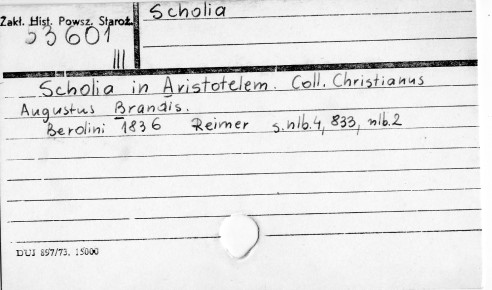 Zakł. Hist. Powsz. Staroż.
53601
III
Scholia
Scholia in Aristotelem. Coll. Christianus
Augustus Brandis.
Berolini 1836 Reimer s.nlb.4, 833, nlb.2
DUJ 897/73. 15000